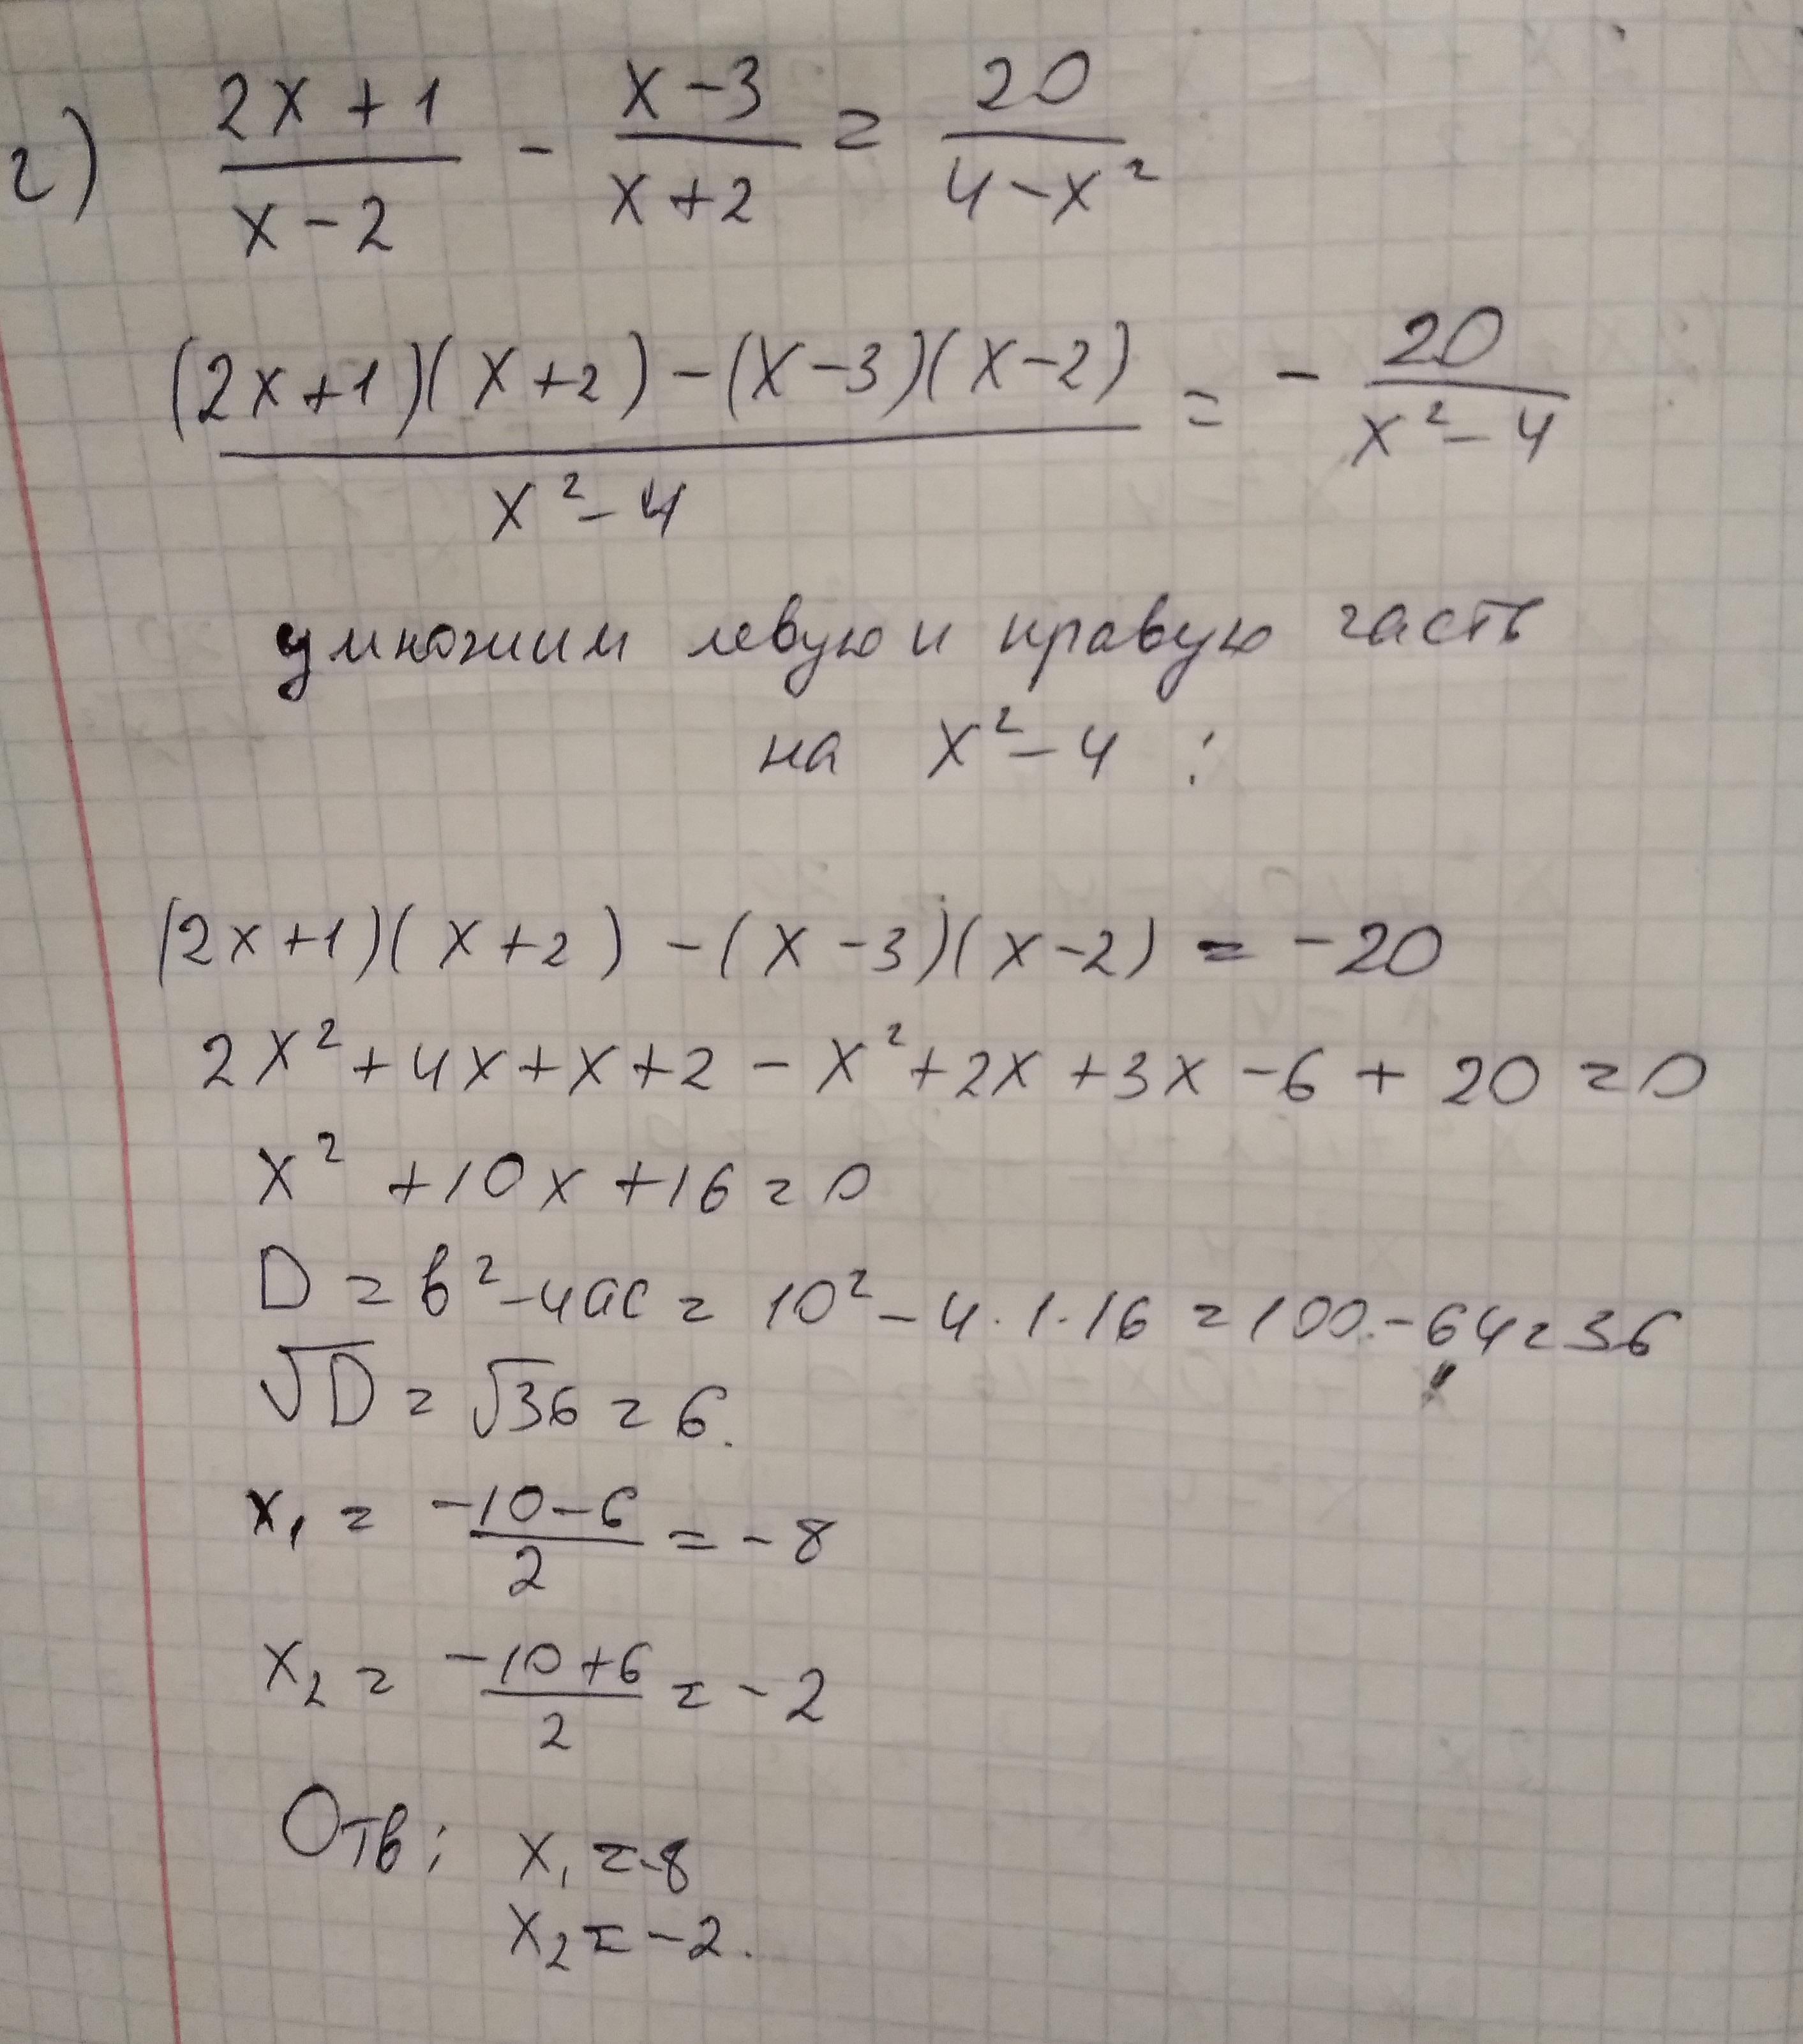 г) (2x+1)/(x-2) - (x-3)/(x+2) = 20/(4-x²)
((2x+1)(x+2)-(x-3)(x-2))/(x²-4) = - 20/(x²-4)
умножим левую и правую часть
на x²-4 :
(2x+1)(x+2) -(x-3)(x-2) = -20
2x²+4x+x+2-x²+2x+3x-6+20=0
x² +10x+16=0
D=b²-4ac=10²-4·1·16=100-64=36
√D=√36=6.
x₁= (-10-6)/2 = -8
x₂= (-10+6)/2 = -2
Отв: x₁=-8
x₂=-2.